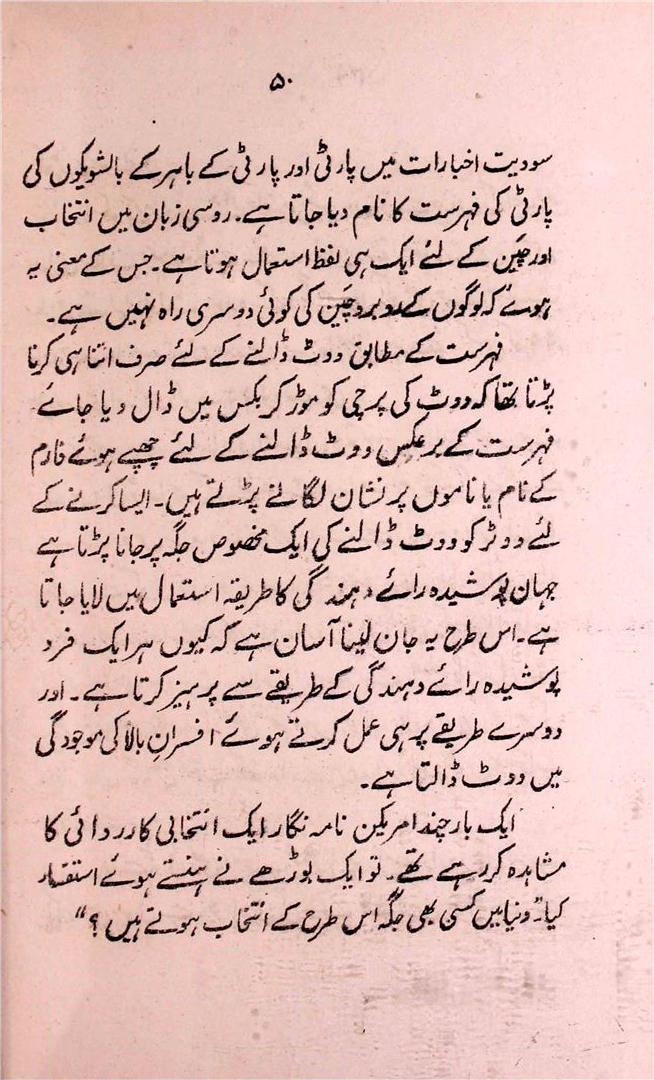 ۵۰
سودیت اخبارات میں پارٹی اور پارٹی کے باہر کے بالشویکوں کی
پارٹی کی فہرست کا نام دیا جاتا ہے۔ روسی زبان میں انتخاب
اور چَین کے لئے ایک ہی لفظ استعمال ہوتا ہے۔ جس کے معنی یہ
ہوئے کہ لوگوں کے روبرو چَین کی کوئی دوسری راہ نہیں ہے۔
فہرست کے مطابق ووٹ ڈالنے کے لئے صرف اتنا ہی کرنا
پڑتا تھا کہ ووٹ کی پرچی کو موڑ کر بکس میں ڈال دیا جائے
فہرست کے برعکس ووٹ ڈالنے کے لئے چھپے ہوئے فارم
کے نام یا ناموں پر نشان لگانے پڑتے ہیں۔ ایسا کرنے کے
لئے ووٹر کو ووٹ ڈالنے کی ایک مخصوص جگہ پر جانا پڑتا ہے
جہاں پوشیدہ رائے دہندگی کا طریقہ استعمال میں لایا جاتا
ہے۔ اس طرح یہ جان لینا آسان ہے کہ کیوں ہر ایک فرد
پوشیدہ رائے دہندگی کے طریقے سے پرہیز کرتا ہے۔ اور
دوسرے طریقے پر ہی عمل کرتے ہوئے افسرانِ بالا کی موجودگی
میں ووٹ ڈالتا ہے۔
ایک بار چند امریکن نامہ نگار ایک انتخابی کارروائی کا
مشاہدہ کر رہے تھے۔ تو ایک بوڑھے نے ہنستے ہوئے استفسار
کیا۔ "دنیا میں کسی بھی جگہ اس طرح کے انتخاب ہوتے ہیں؟"